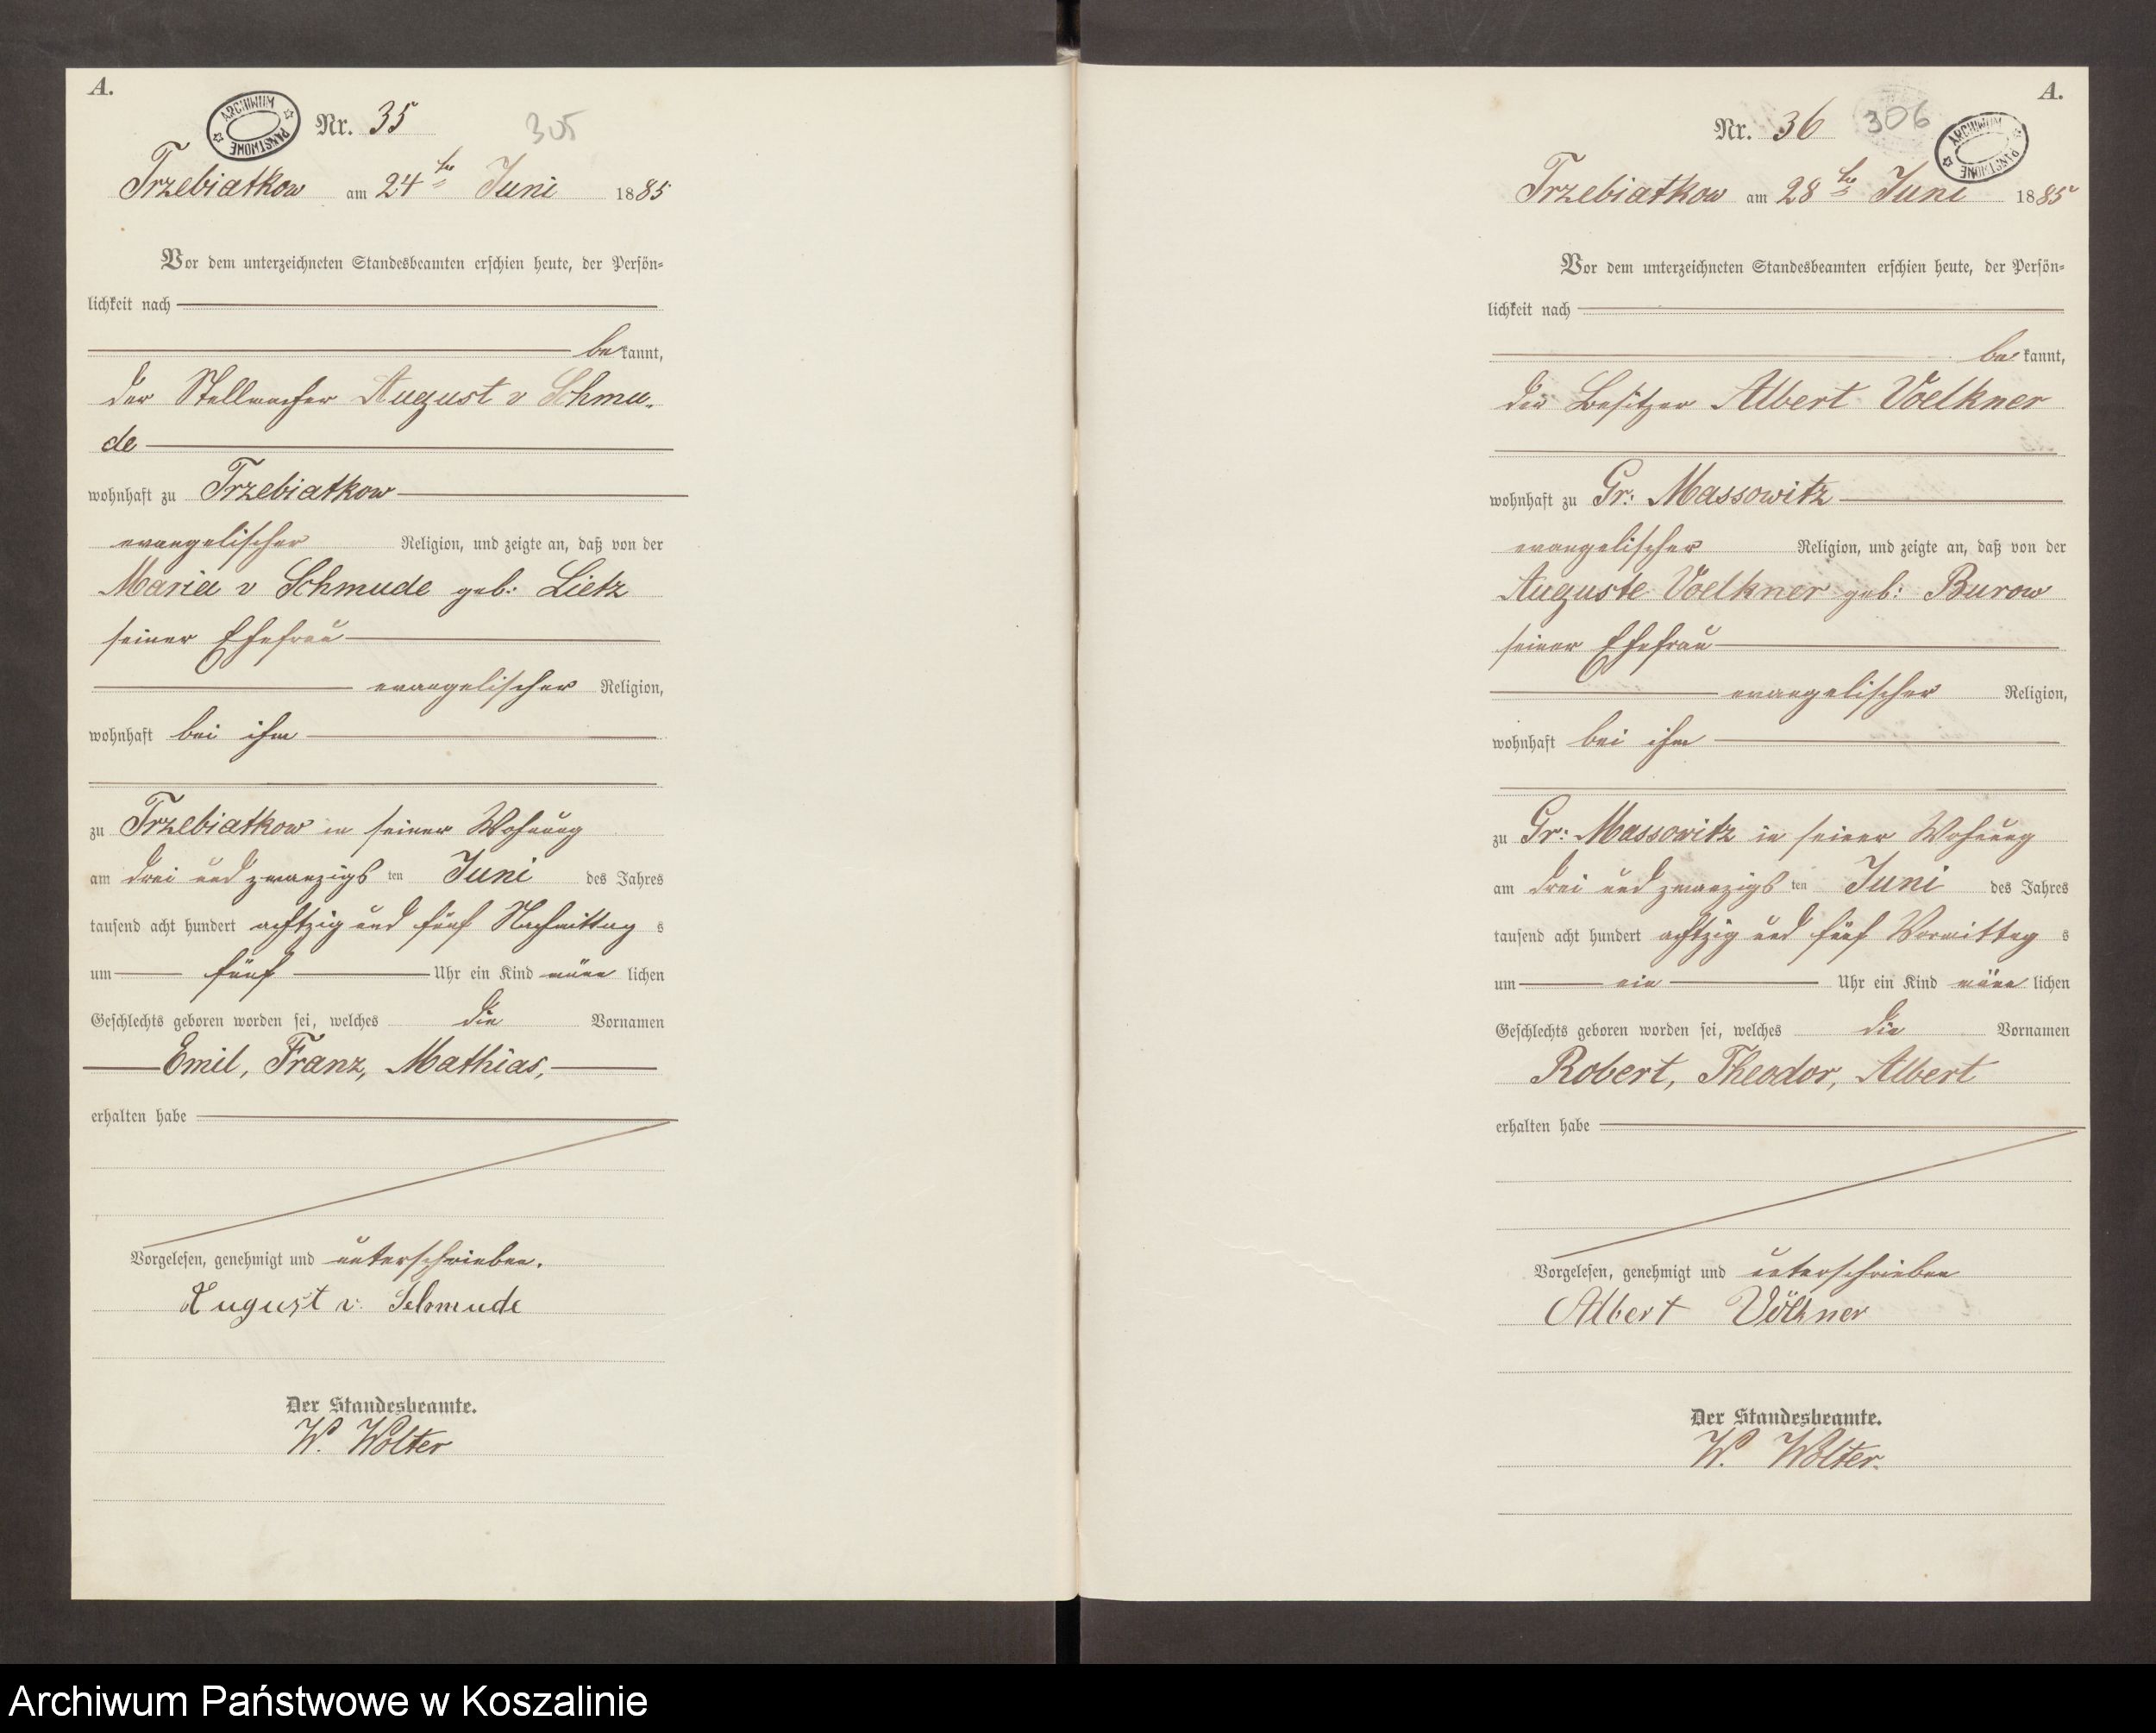 A.
ARCHIWUM PAŃSTWOWE
Nr. 35
305
Trzebiatkow am 24ten Juni 1885
Vor dem unterzeichneten Standesbeamten erschien heute, der Persön-
lichkeit nach
bekannt,
der Stellmacher August v Schmu-
de
wohnhaft zu Trzebiatkow
evangelischer Religion, und zeigte an, daß von der
Maria v Schmude geb: Lietz
seiner Ehefrau
evangelischer Religion,
wohnhaft bei ihm
zu Trzebiatkow in seiner Wohnung
am drei und zwanzigsten Juni des Jahres
tausend acht hundert achtzig und fünf Nachmittags
um fünf Uhr ein Kind männlichen
Geschlechts geboren worden sei, welches die Vornamen
Emil, Franz, Mathias,
erhalten habe
Vorgelesen, genehmigt und unterschrieben.
August v. Schmude
Der Standesbeamte.
W. Wolter
A.
Nr. 36
306
ARCHIWUM PAŃSTWOWE
Trzebiatkow am 28ten Juni 1885
Vor dem unterzeichneten Standesbeamten erschien heute, der Persön-
lichkeit nach
bekannt,
der Besitzer Albert Voelkner
wohnhaft zu Gr: Massowitz
evangelischer Religion, und zeigte an, daß von der
Auguste Voelkner geb: Burow
seiner Ehefrau
evangelischer Religion,
wohnhaft bei ihm
zu Gr: Massowitz in seiner Wohnung
am drei und zwanzigsten Juni des Jahres
tausend acht hundert achtzig und fünf Vormittags
um ein Uhr ein Kind männlichen
Geschlechts geboren worden sei, welches die Vornamen
Robert, Theodor, Albert
erhalten habe
Vorgelesen, genehmigt und unterschrieben
Albert Völkner
Der Standesbeamte.
W. Wolter.
Archiwum Państwowe w Koszalinie